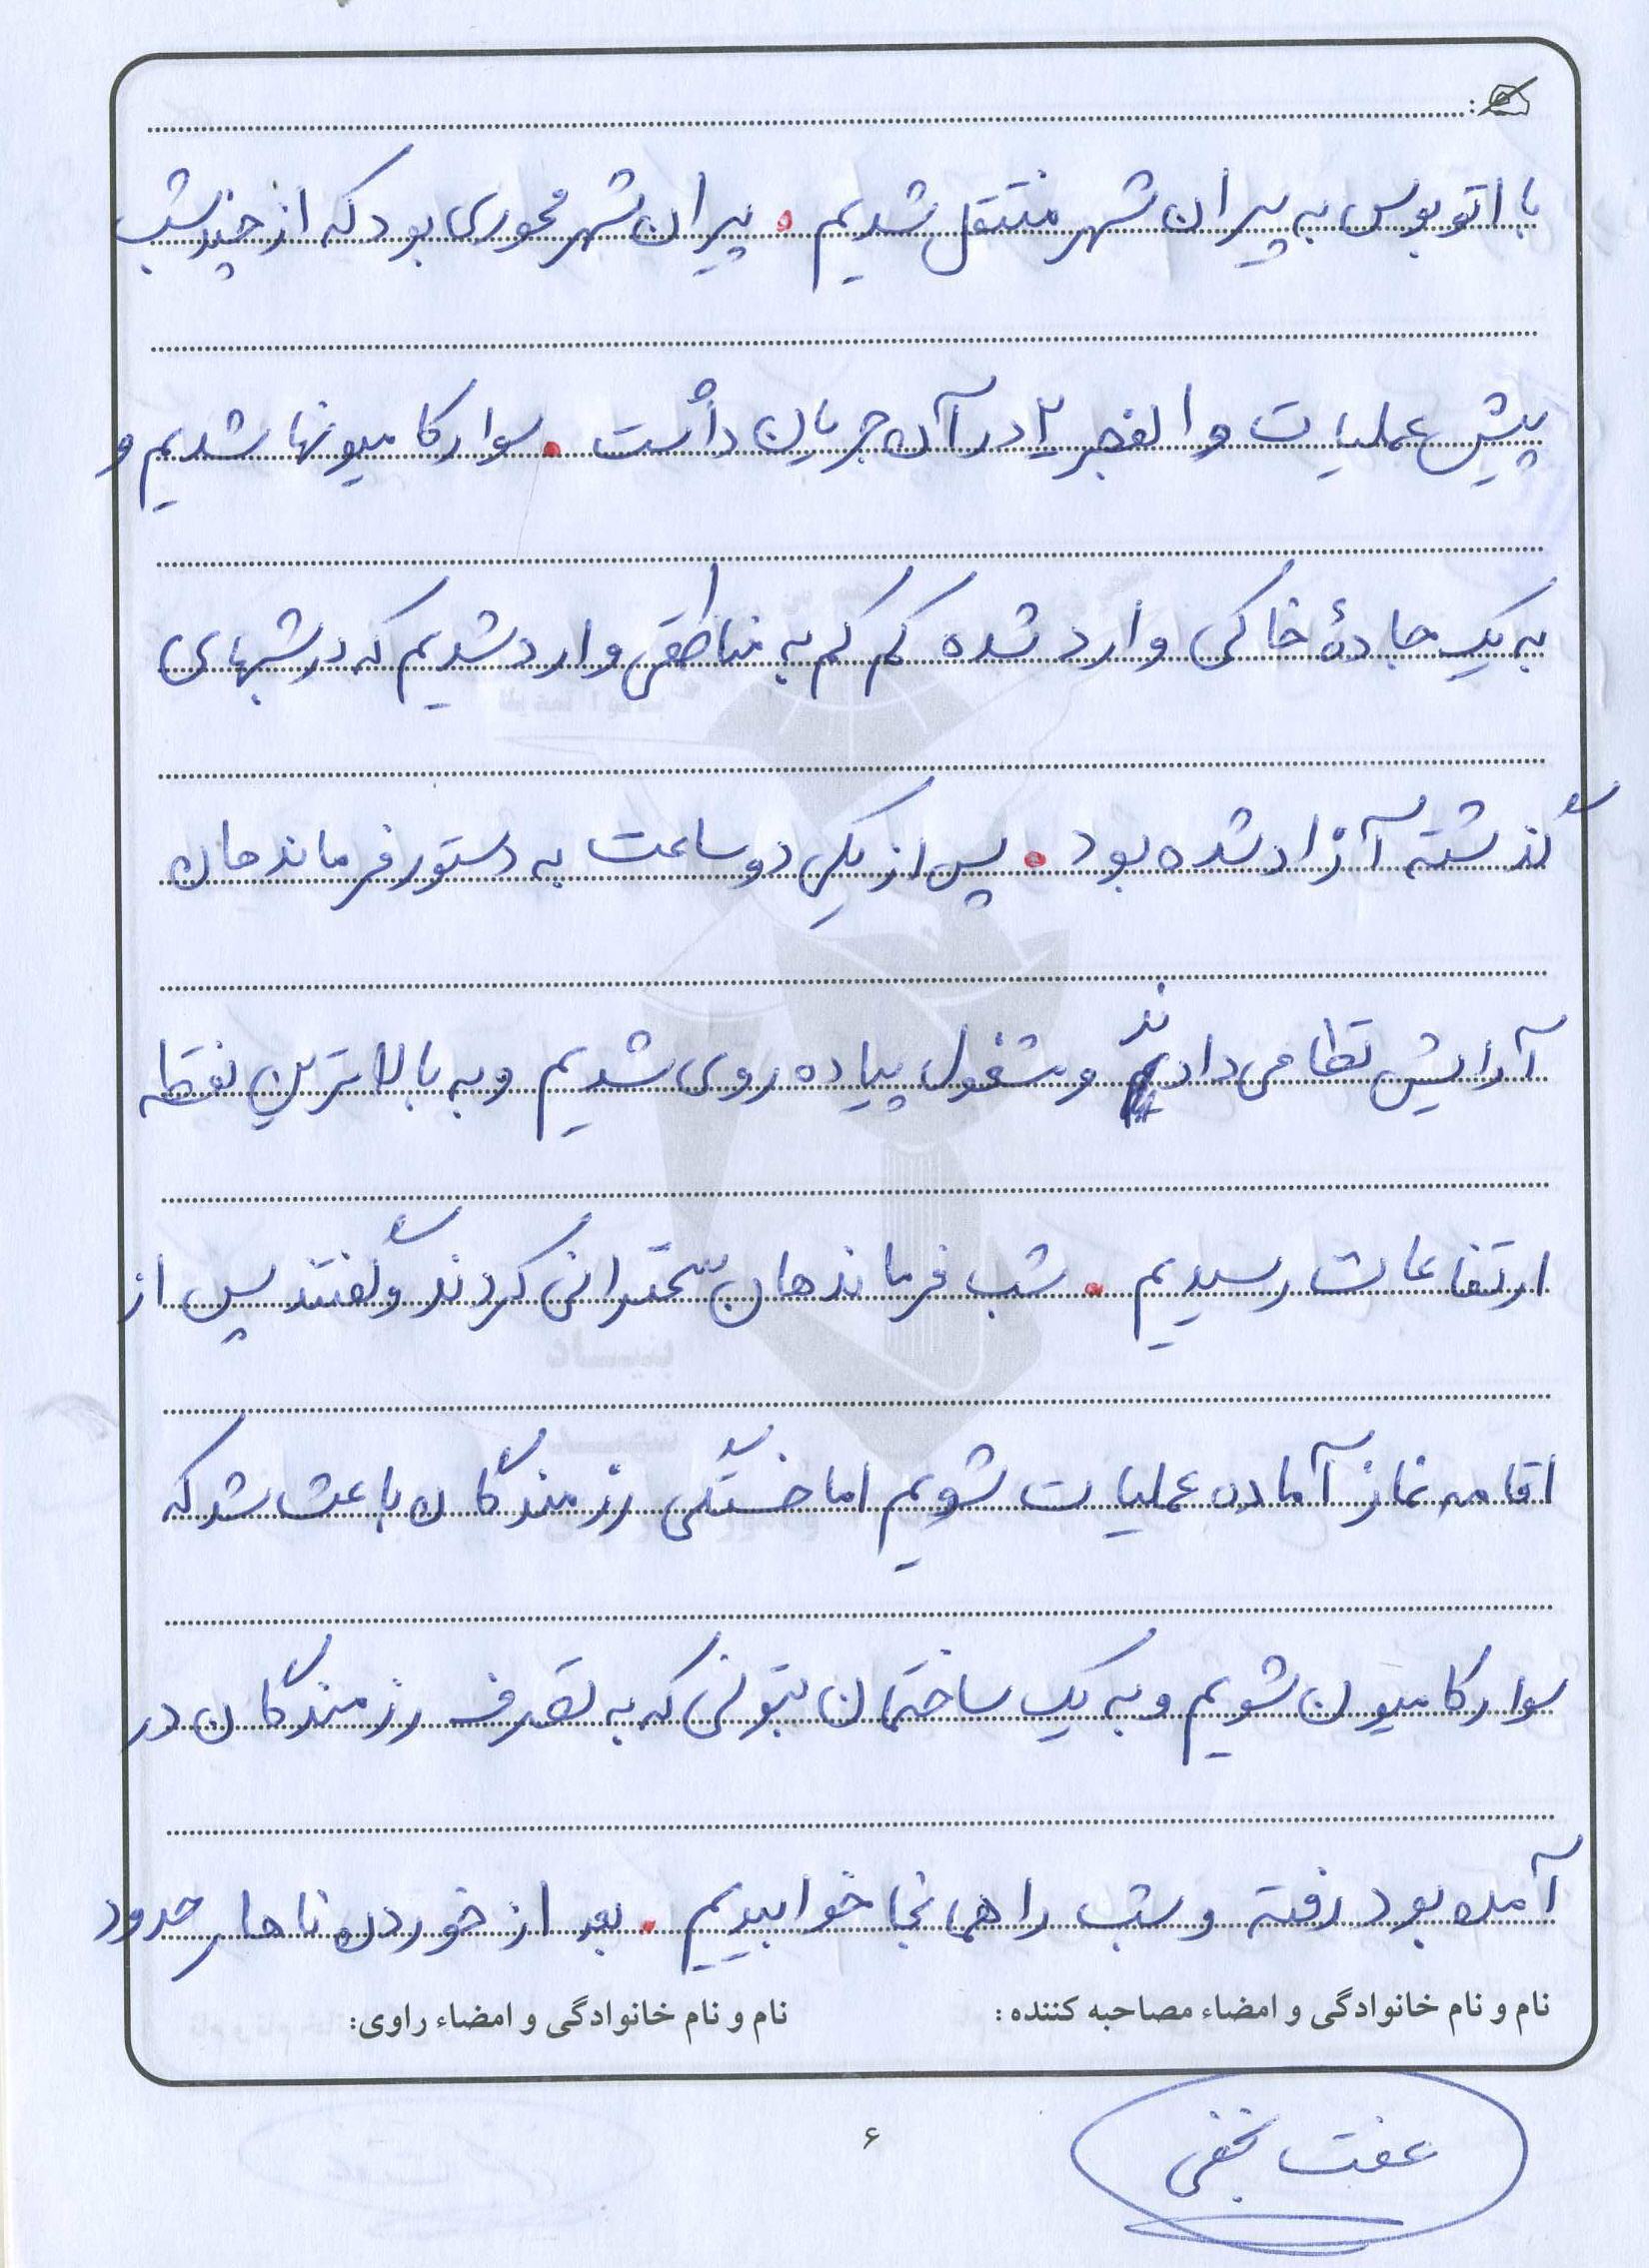 با اتوبوس به پیران شهر منتقل شدیم. پیران شهر محوری بود که از چند شب
پیش عملیات والفجر ۲ در آن جریان داشت. سوار کامیونها شدیم و
به یک جادهٔ خاکی وارد شده کم کم به مناطقی وارد شدیم که در شبهای
گذشته آزاد شده بود. پس از یکی دو ساعت به دستور فرماندهان
آرایش نظامی دادند و مشغول پیاده روی شدیم و به بالاترین نقطه
ارتفاعات رسیدیم. شب فرماندهان سخنرانی کردند و گفتند پس از
اقامه نماز آماده عملیات شویم اما خستگی رزمندگان باعث شد که
سوار کامیون شویم و به یک ساختمان بتونی که به تصرف رزمندگان در
آمده بود رفته و شب را همانجا خوابیدیم. بعد از خوردن ناهار حدود
نام و نام خانوادگی و امضاء مصاحبه کننده: نام و نام خانوادگی و امضاء راوی:
عفت نجفی
۶